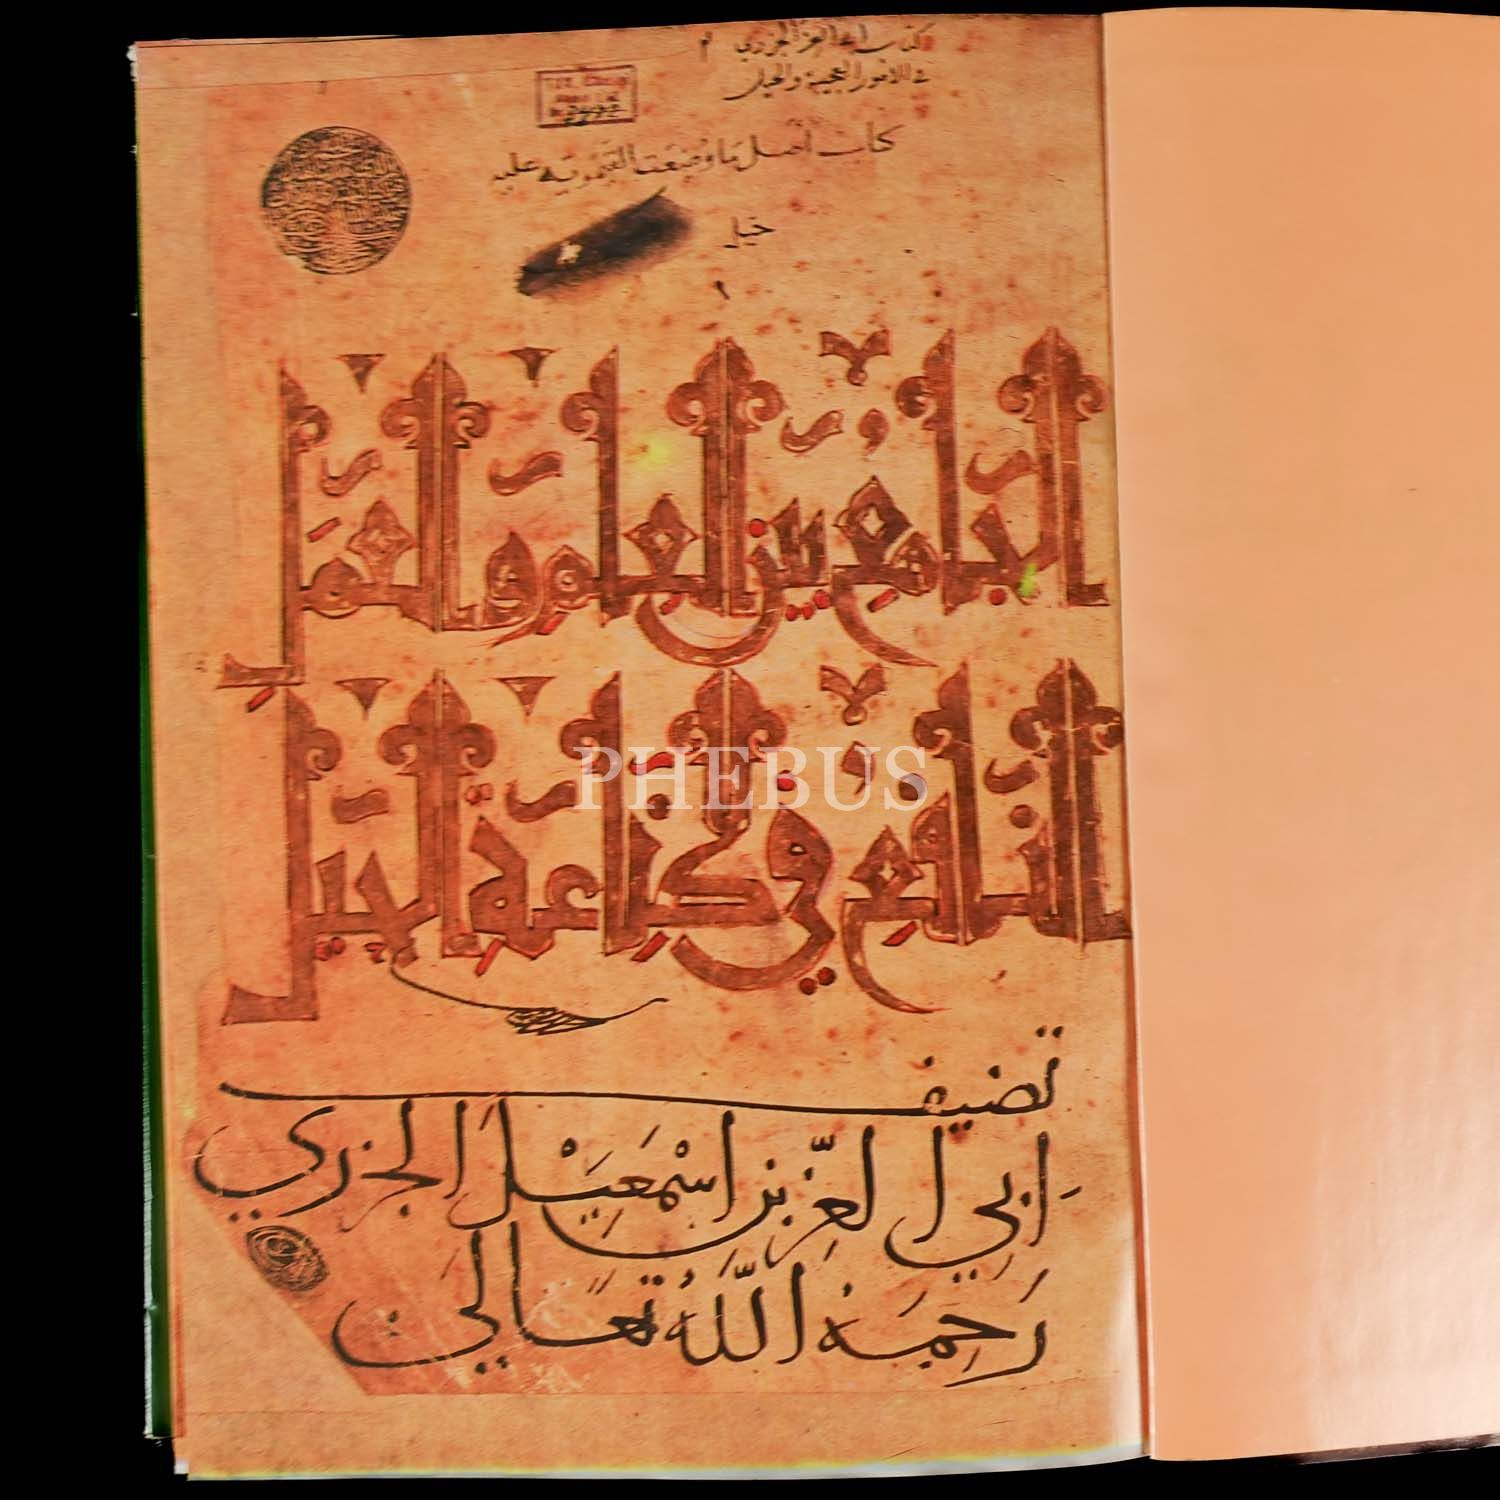 كتاب ابي العز الجزري
في الامور العجيبة والحيل
كتاب اصل ما وضعت عليه
حيل
الجامع بين العلم والعمل
النافع في صناعة الحيل
PHEBUS
تصنيف
أبي العز بن اسمعيل الجزري
رحمه الله تعالى